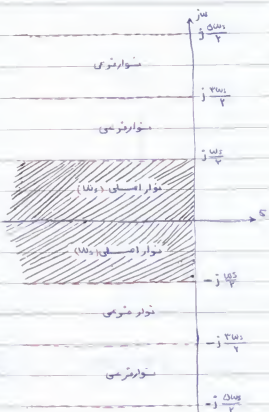 jω
j ۵ωs/۲
نوار فرعی
j ۳ωs/۲
نوار فرعی
j ωs/۲
نوار اصلی (ωs)
σ
نوار اصلی (ωs)
-j ωs/۲
نوار فرعی
-j ۳ωs/۲
نوار فرعی
-j ۵ωs/۲